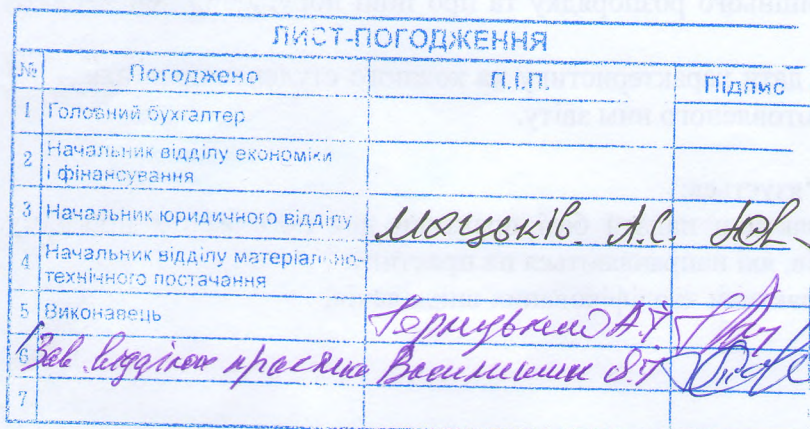 ЛИСТ-ПОГОДЖЕННЯ
№ Погоджено П.І.П. Підпис
1 Головний бухгалтер
2 Начальник відділу економіки
і фінансування
3 Начальник юридичного відділу Мацьків. А.С.
4 Начальник відділу матеріально-
технічного постачання
5 Виконавець
6 Зав. відділом практик
7